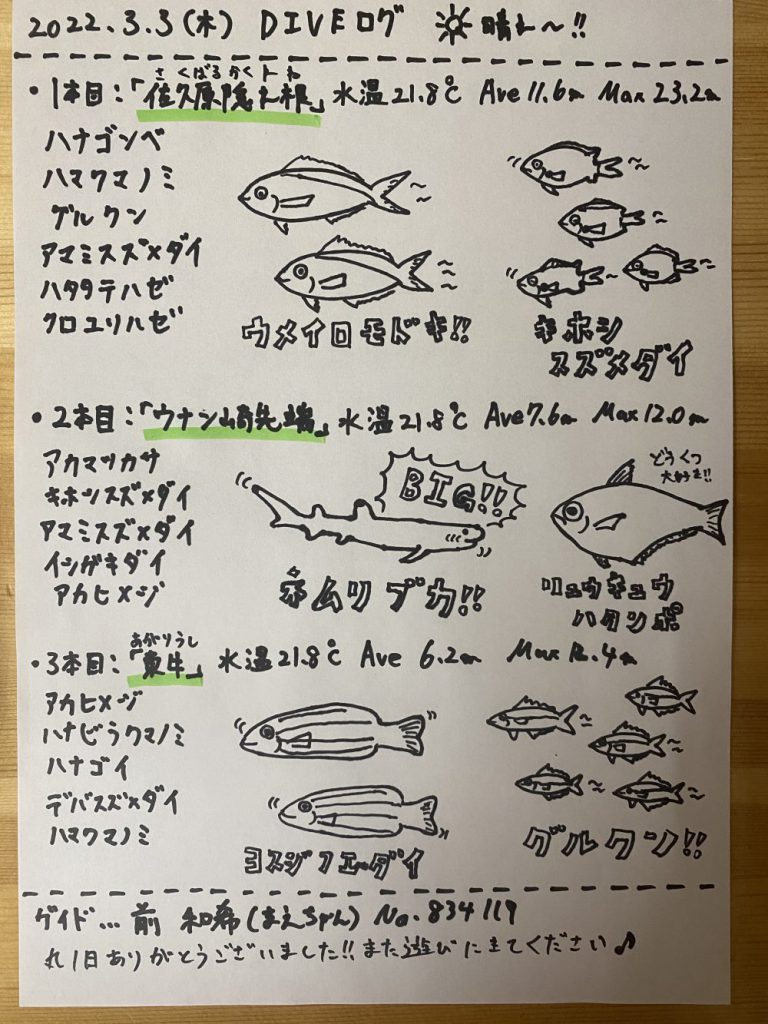 2022.3.3(木) DIVEログ 晴れ〜!!
・1本目:「佐久原隠れ根」水温21.8℃ Ave 11.6m Max 23.2m
さくばるかくれね
ハナゴンベ
ハマクマノミ
グルクン
アマミスズメダイ
ハタタテハゼ
クロユリハゼ
ウメイロモドキ!!
キホシ
スズメダイ
・2本目:「ウナン崎先端」水温21.8℃ Ave7.6m Max12.0m
アカマツカサ
キホシスズメダイ
アマミスズメダイ
イシガキダイ
アカヒメジ
BIG!!
ネムリブカ!!
どうくつ
大好き!!
リュウキュウ
ハタンポ
・3本目:「東牛」水温21.8℃ Ave 6.2m Max 12.4m
あがりうし
アカヒメジ
ハナビラクマノミ
ハナゴイ
デバスズメダイ
ハマクマノミ
ヨスジフエダイ
グルクン!!
ガイド… 前 和希(まえちゃん) No.834119
1日ありがとうございました!!また遊びにきてください♪